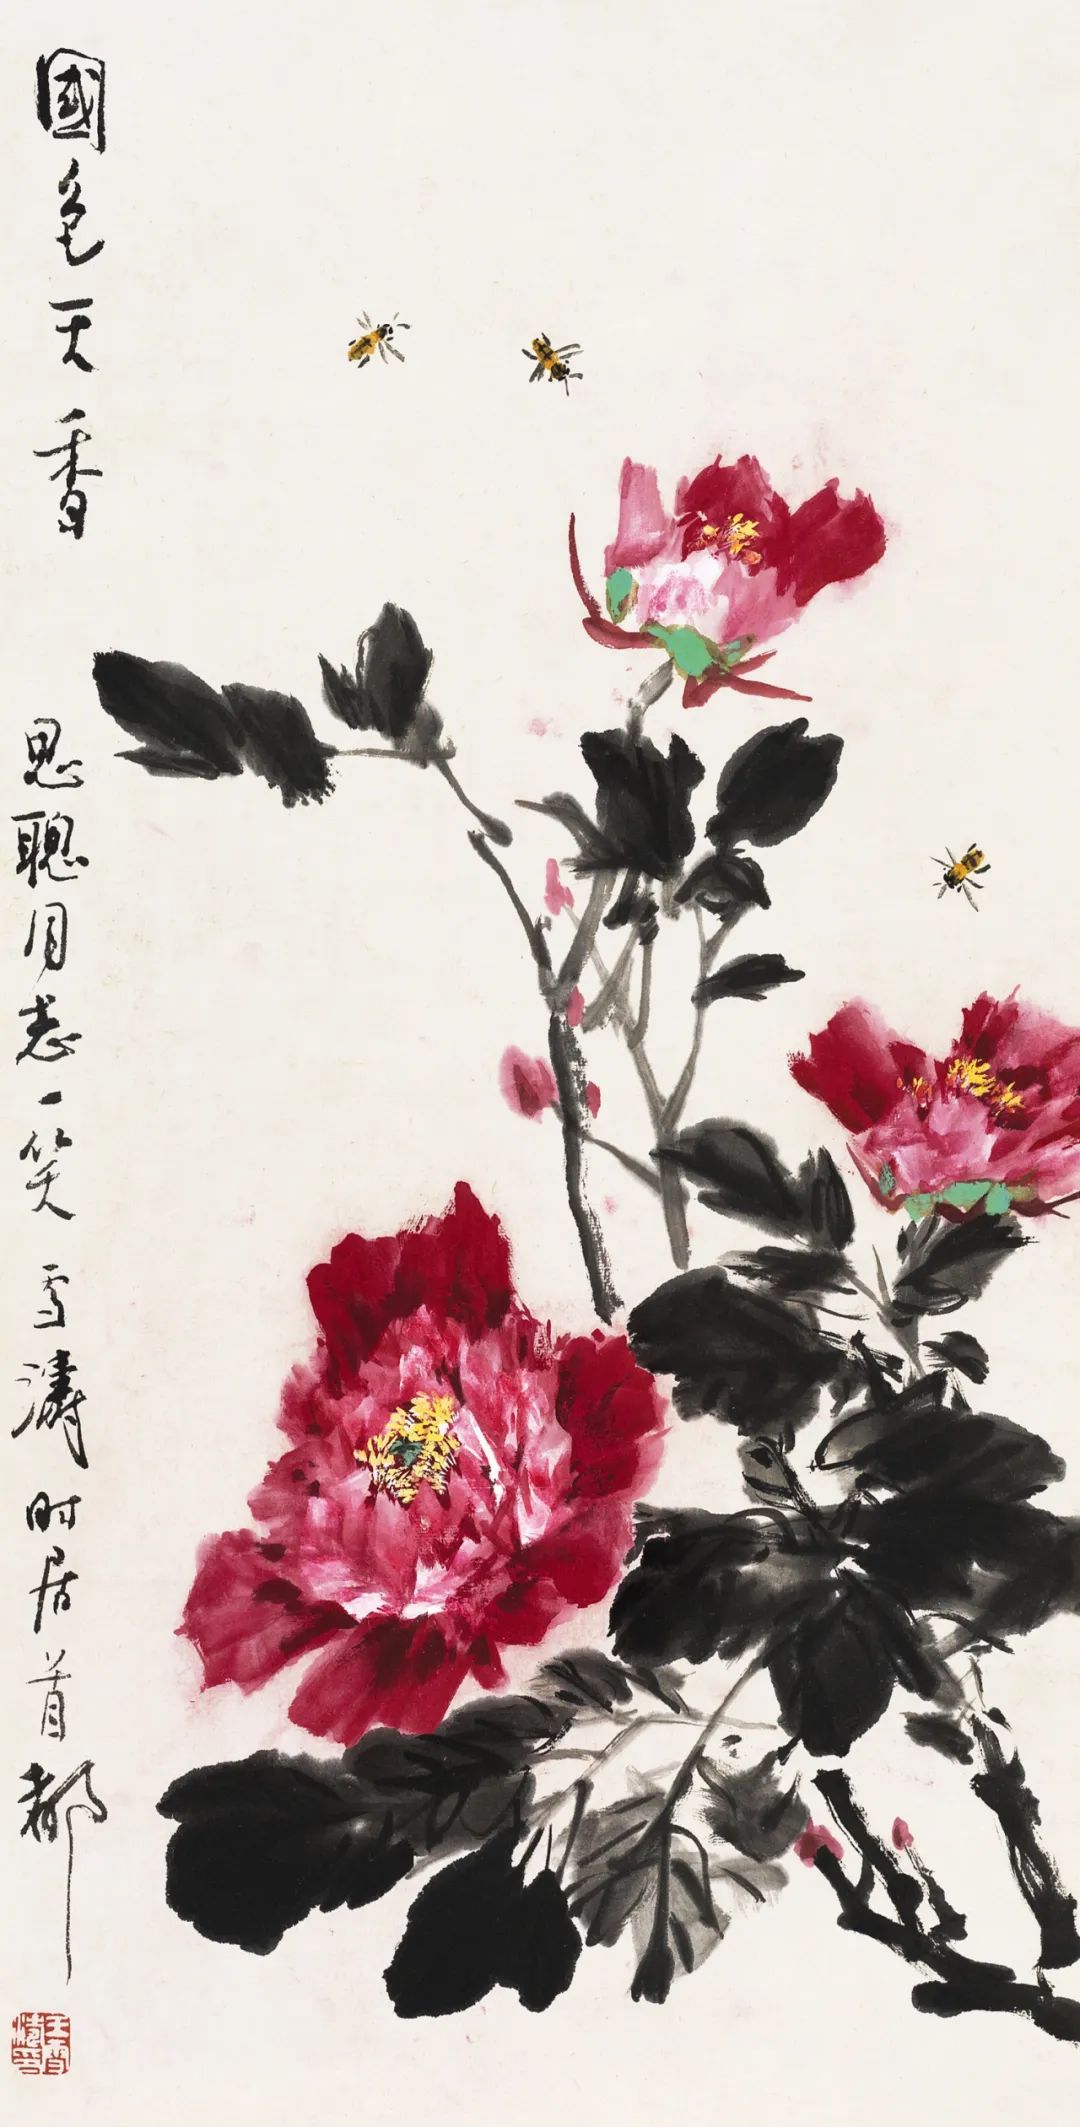 國色天香
思聰同志一笑 雪濤时居首都
王雪濤印